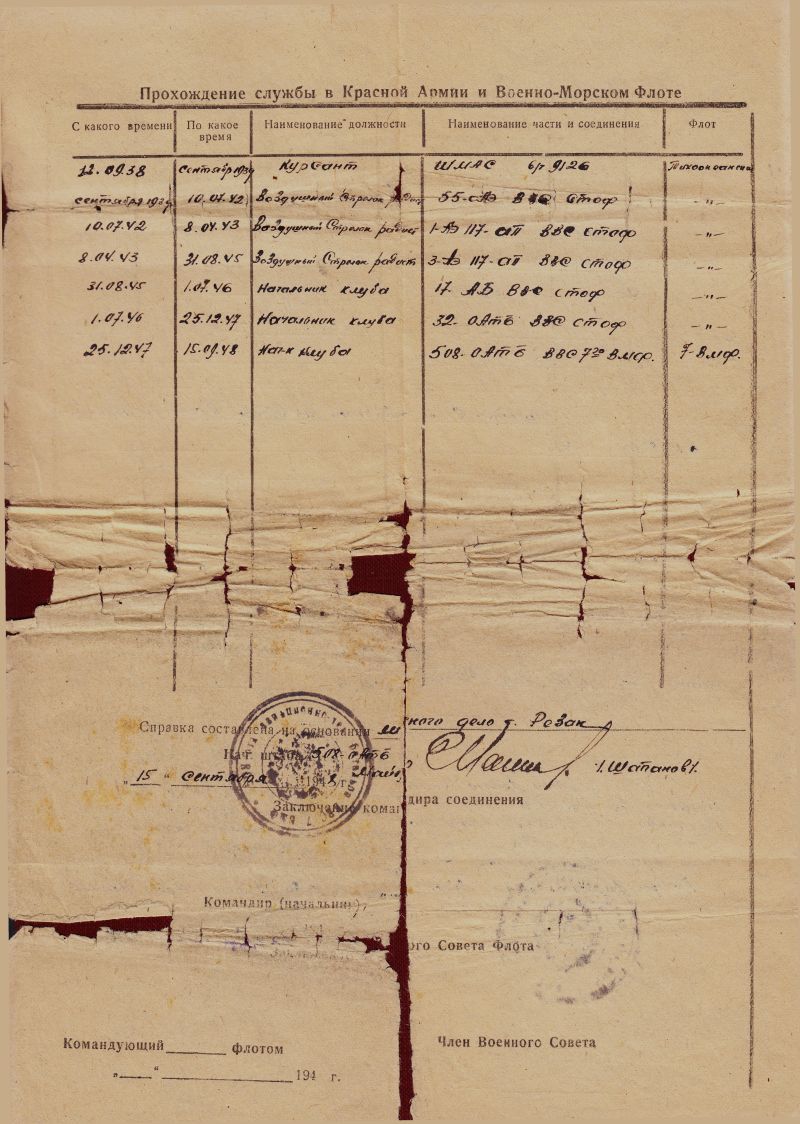 Прохождение службы в Красной Армии и Военно-Морском Флоте
С какого времени По какое время Наименование должности Наименование части и соединения Флот
12.09.38 сентябрь 1939 Курсант ШМАС в/ч 9126 Тихоокеанский
сентября 1939 10.07.42 Воздушный Стрелок радист 55-АЭ ВВС СТОФ -"-
10.07.42 8.04.43 Воздушный Стрелок радист 1-АЭ 117-АП ВВС СТОФ -"-
8.04.43 31.08.45 Воздушный Стрелок радист 3-АЭ 117-АП ВВС СТОФ -"-
31.08.45 1.07.46 Начальник клуба 17-АБ ВВС СТОФ -"-
1.07.46 25.12.47 Начальник клуба 32-ОАТБ ВВС СТОФ -"-
25.12.47 15.09.48 Нач-к клуба 508-ОАТБ ВВС 7го ВМФ. 7-ВМФ.
Справка составлена на основании ли ного дело т. Резак
Нач. 508 ОАТБ
Майор /Шапанов/.
„15“ сентября 1948 г.
Заключение кома дира соединения
Командир (начальник)
ого Совета Флота
Командующий ______ флотом Член Военного Совета
„___“ ______ 194 г.